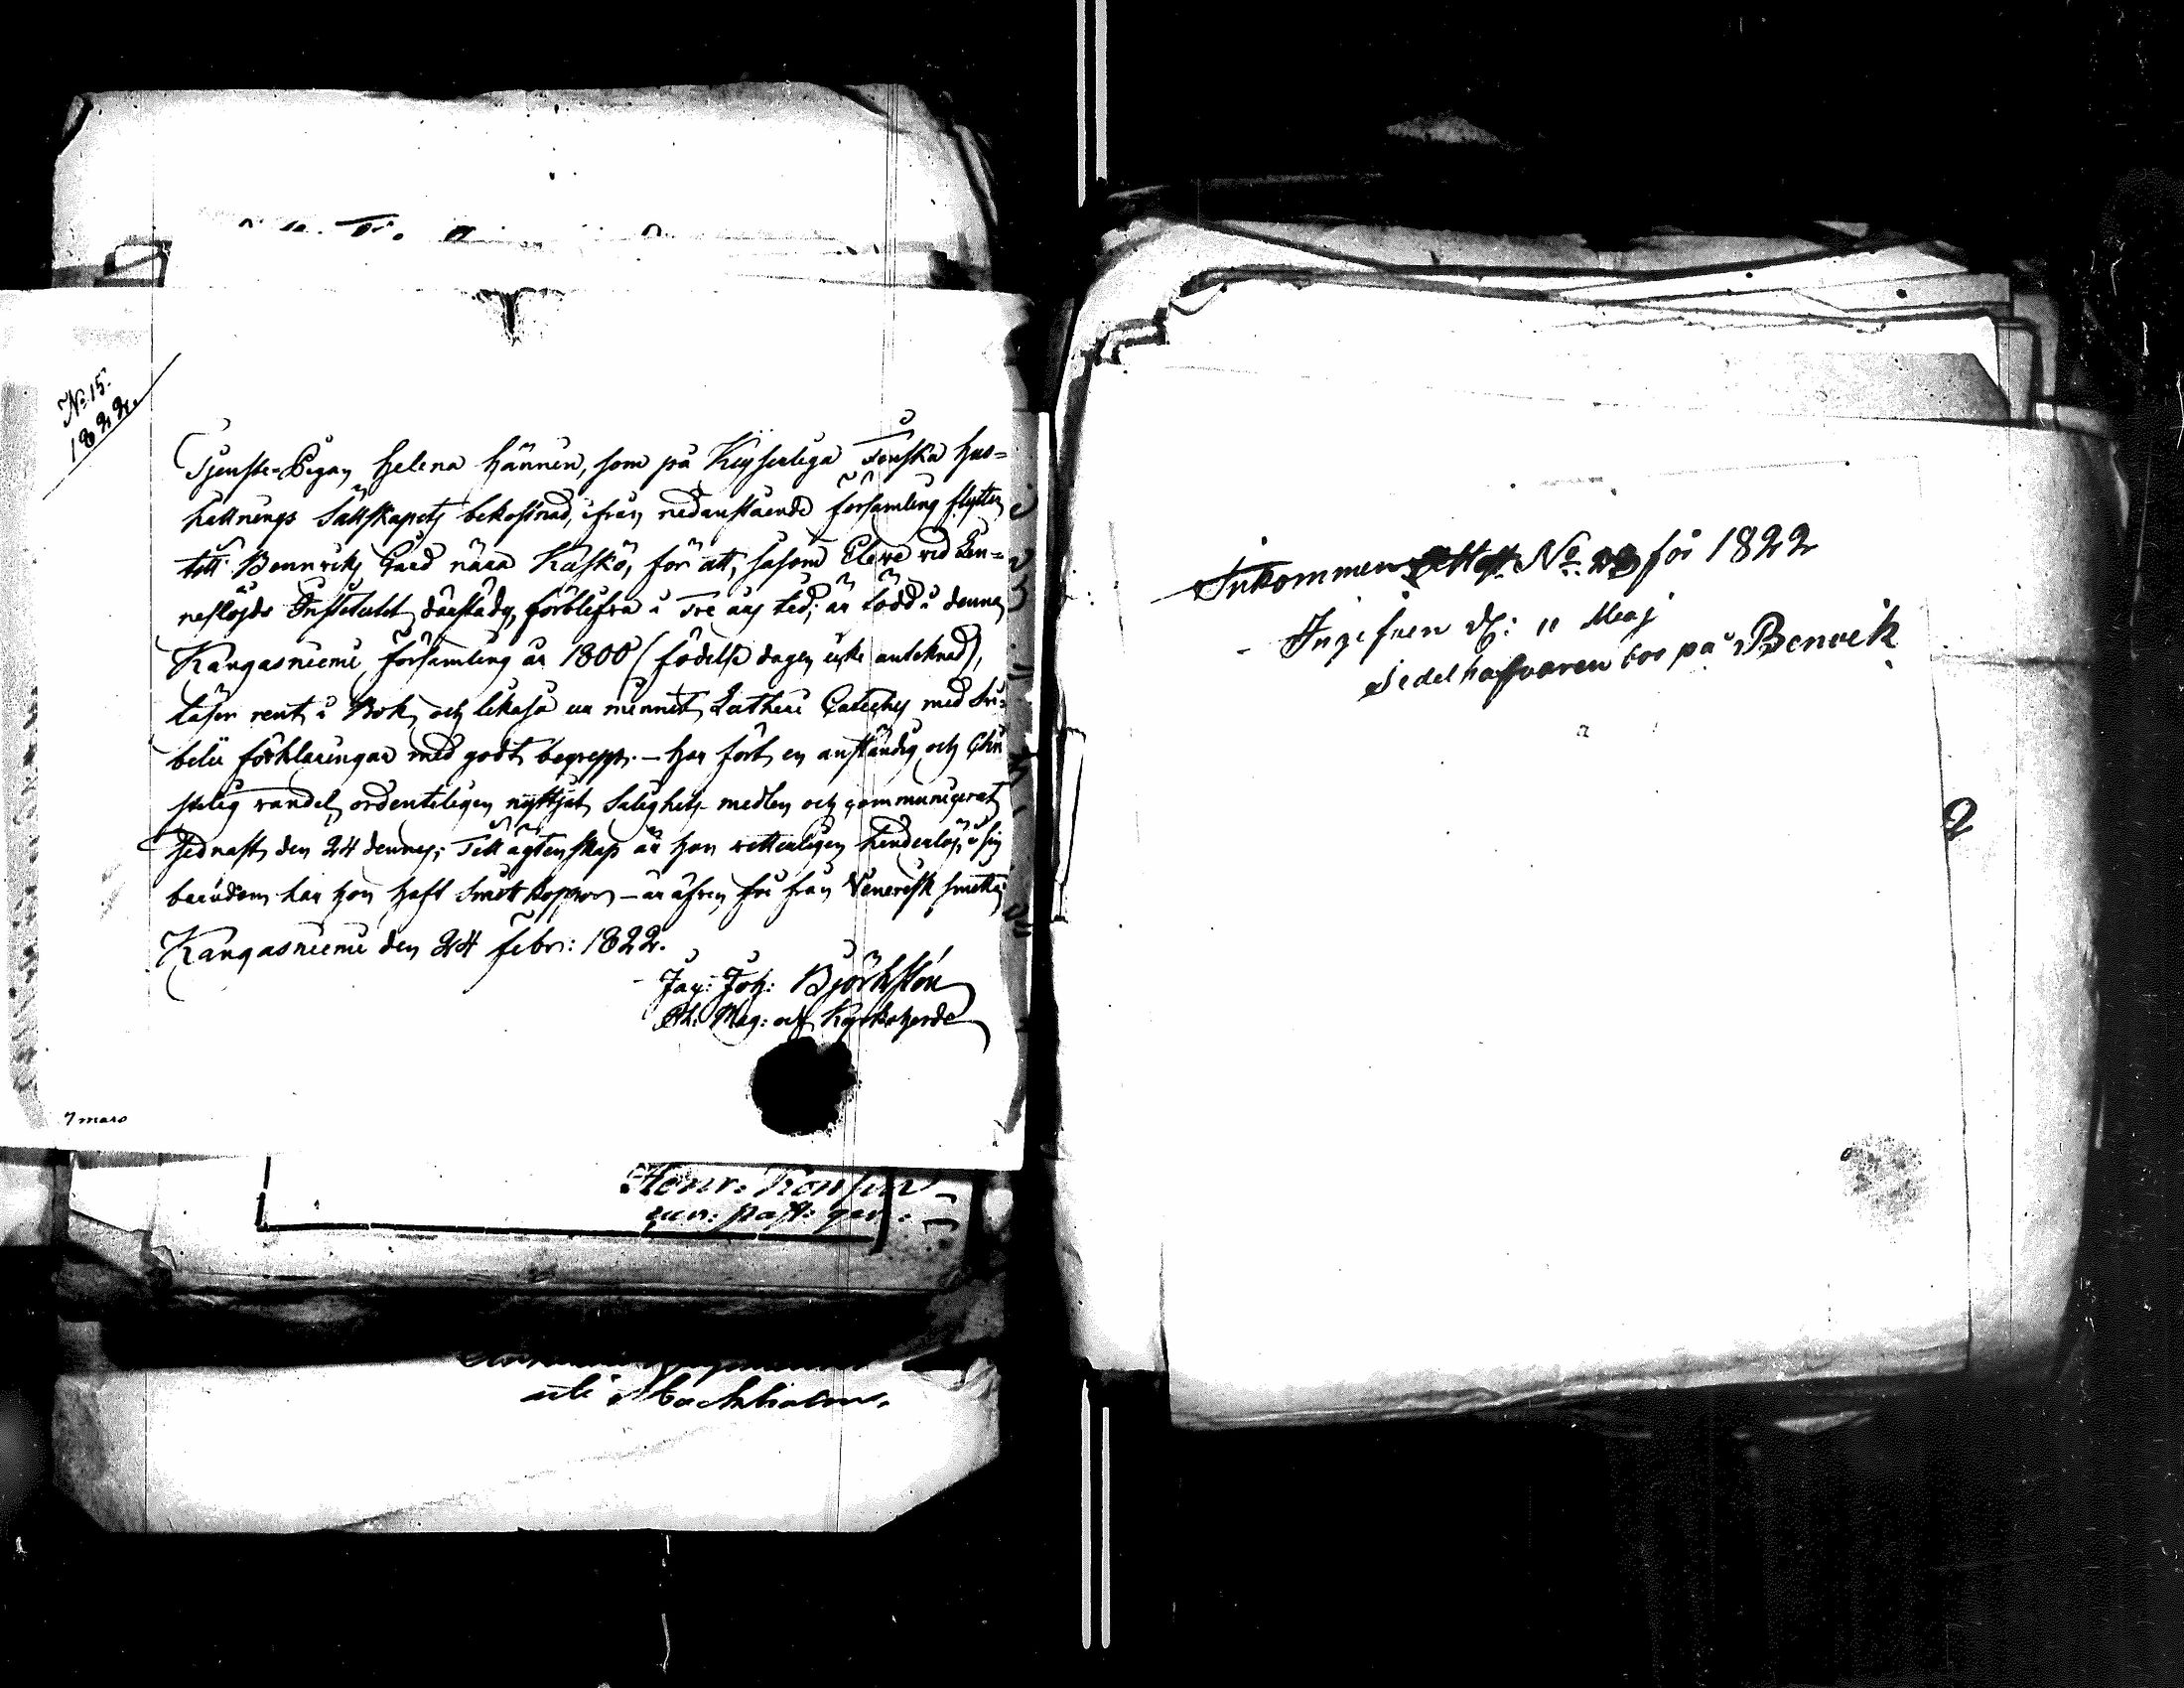 No 15.
1822.
Tjenste-Pigan Helena Hännin, som på Keyserliga Finska Hus=
hållnings Sällskapets bekostnad, ifrån nedanstående församling flyttar
till Bennviks Gård nära Kaskö, för att, såsom Eleve vid Lin=
neslöjds Institutet därstädes, förblifva i Tre års tid; är född i denna
Kangasniemi församling år 1800 (födelse dagen icke antecknad),
läser rent i Bok, och likaså ur minnet Lutheri Cateches med Sve=
belii förklaringar med godt begrepp. - har fört en anständig och Chri
stelig vandel, ordenteligen nyttjat Salighets-medlen och communicerat
sednast den 24 dennes; Till ägtenskap är hon vetterligen hinderlös, i sin
barndom har hon haft Smittkoppor - är äfven fri från Venerisk smitta
Kangasniemi den 24 Febr: 1822.
Jac: Joh: Björkstén
Ph: Mag: och Kyrkoherde
7 mars
Henr:
past:
Inkommen No. för 1822
Ingifven d: 11 Maj
Sedelhafvaren bor på Benvik
2